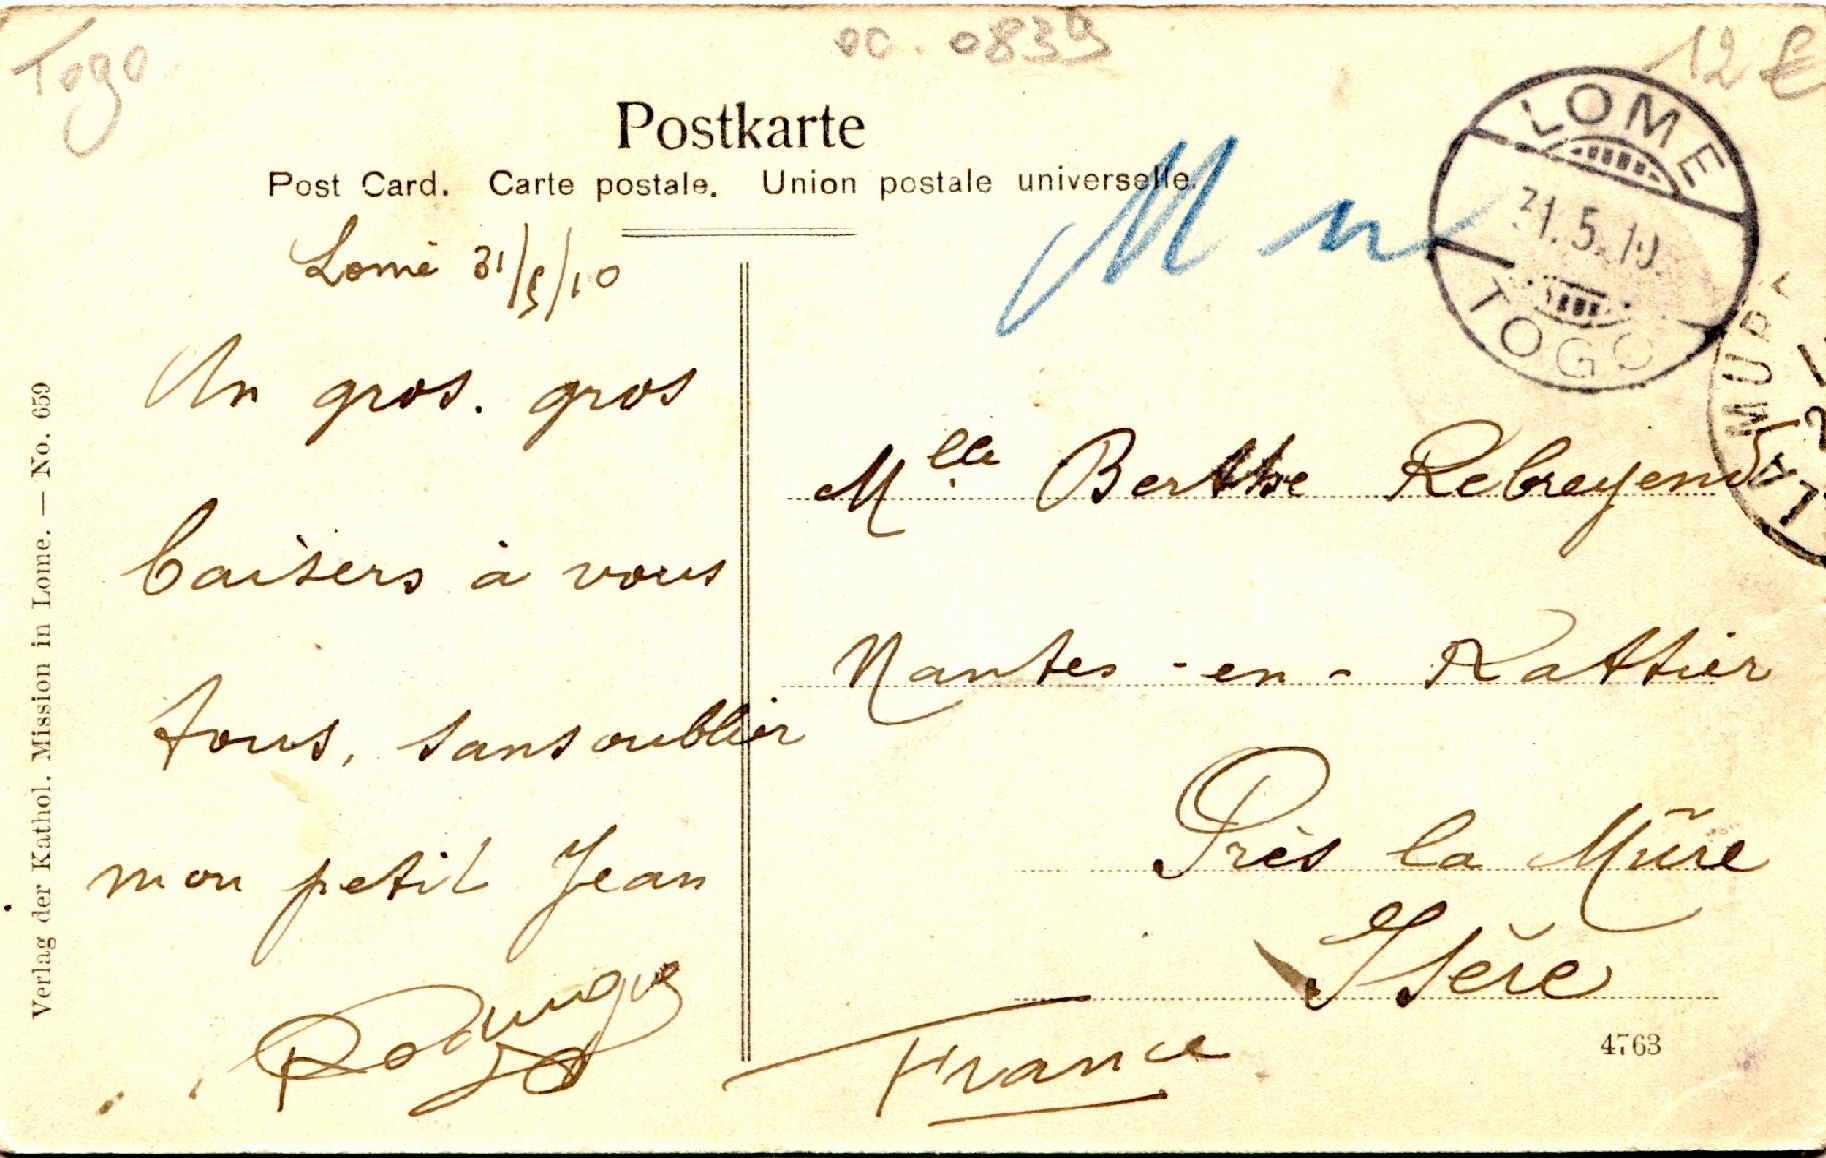 Togo
00.0839
12 €
Postkarte
Post Card. Carte postale. Union postale universelle.
LOME
31.5.10.
TOGO
Lomé 31/5/10
Un gros. gros
baisers à vous
tous, sans oublier
mon petit Jean
Mlle Berthe Rebreyend
Nantes-en-Rattier
Près la Mûre
Isère
France
LA MURE
4763
Verlag der Kathol. Mission in Lome. — No. 659